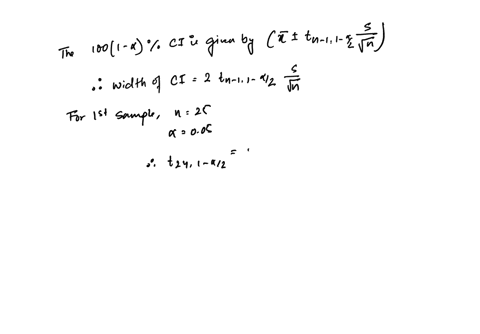 The 100(1-α)% CI is given by (x̄ ± t_{n-1, 1-α/2} s/√n)
∴ width of CI = 2 t_{n-1, 1-α/2} s/√n
For 1st sample, n = 25
α = 0.05
∴ t_{24, 1-α/2} =